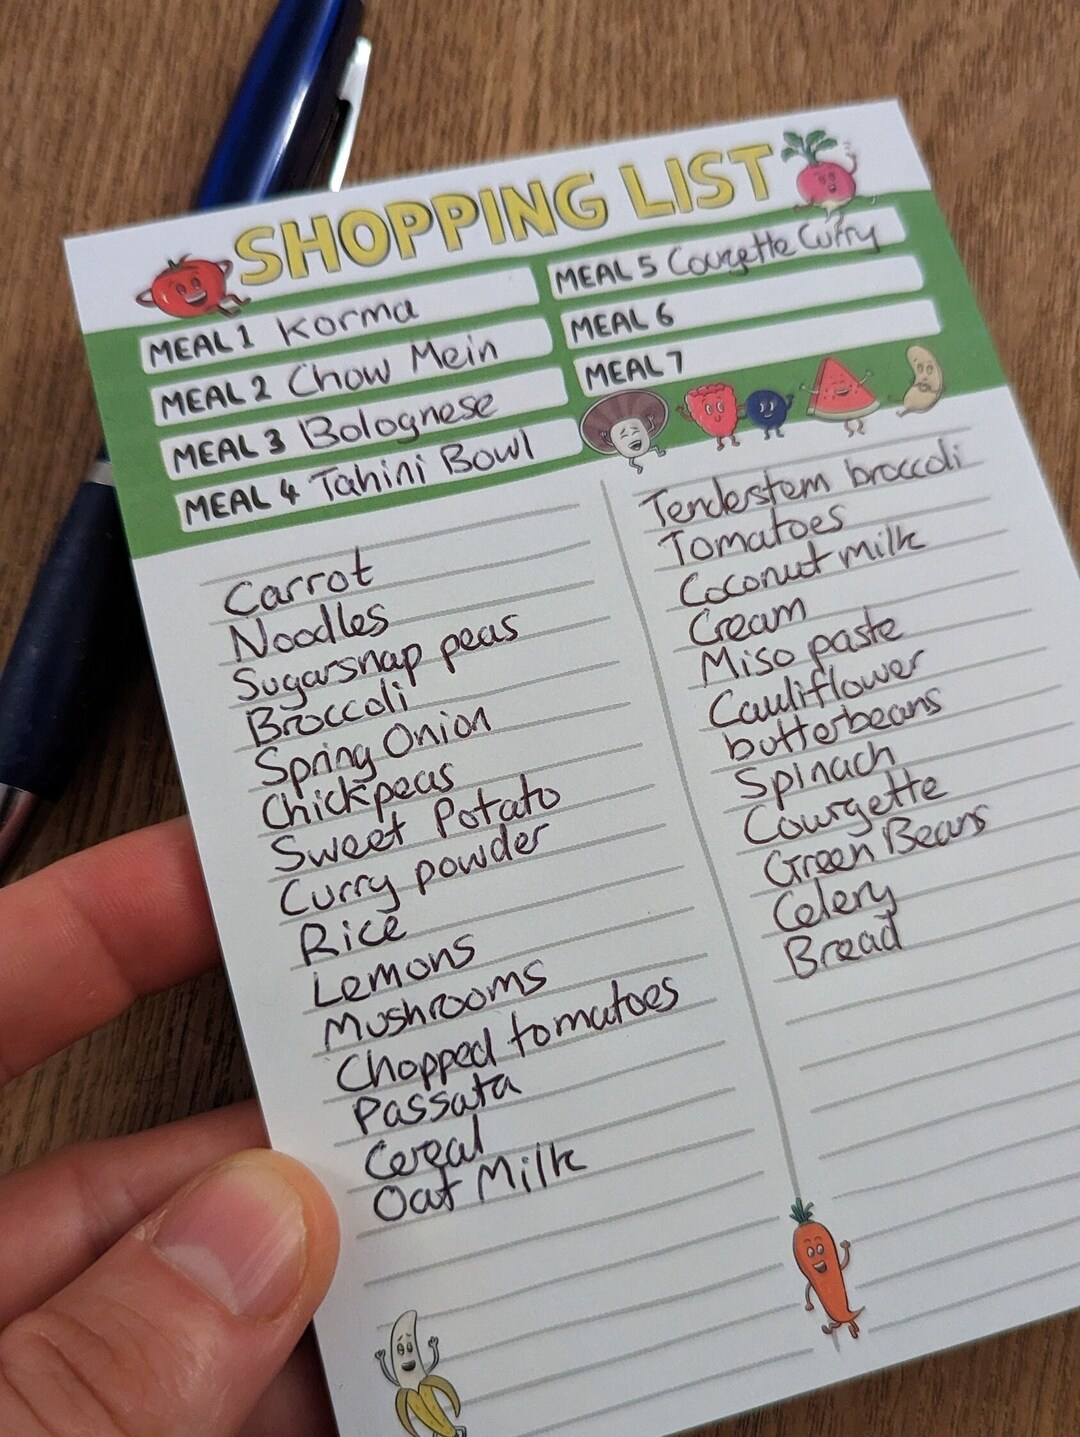 SHOPPING LIST
MEAL 1 Korma
MEAL 2 Chow Mein
MEAL 3 Bolognese
MEAL 4 Tahini Bowl
MEAL 5 Courgette Curry
MEAL 6
MEAL 7
Carrot
Noodles
Sugarsnap peas
Broccoli
Spring Onion
Chickpeas
Sweet Potato
Curry powder
Rice
Lemons
Mushrooms
Chopped tomatoes
Passata
Cereal
Oat Milk
Tenderstem broccoli
Tomatoes
Coconut milk
Cream
Miso paste
Cauliflower
butterbeans
Spinach
Courgette
Green Beans
Celery
Bread